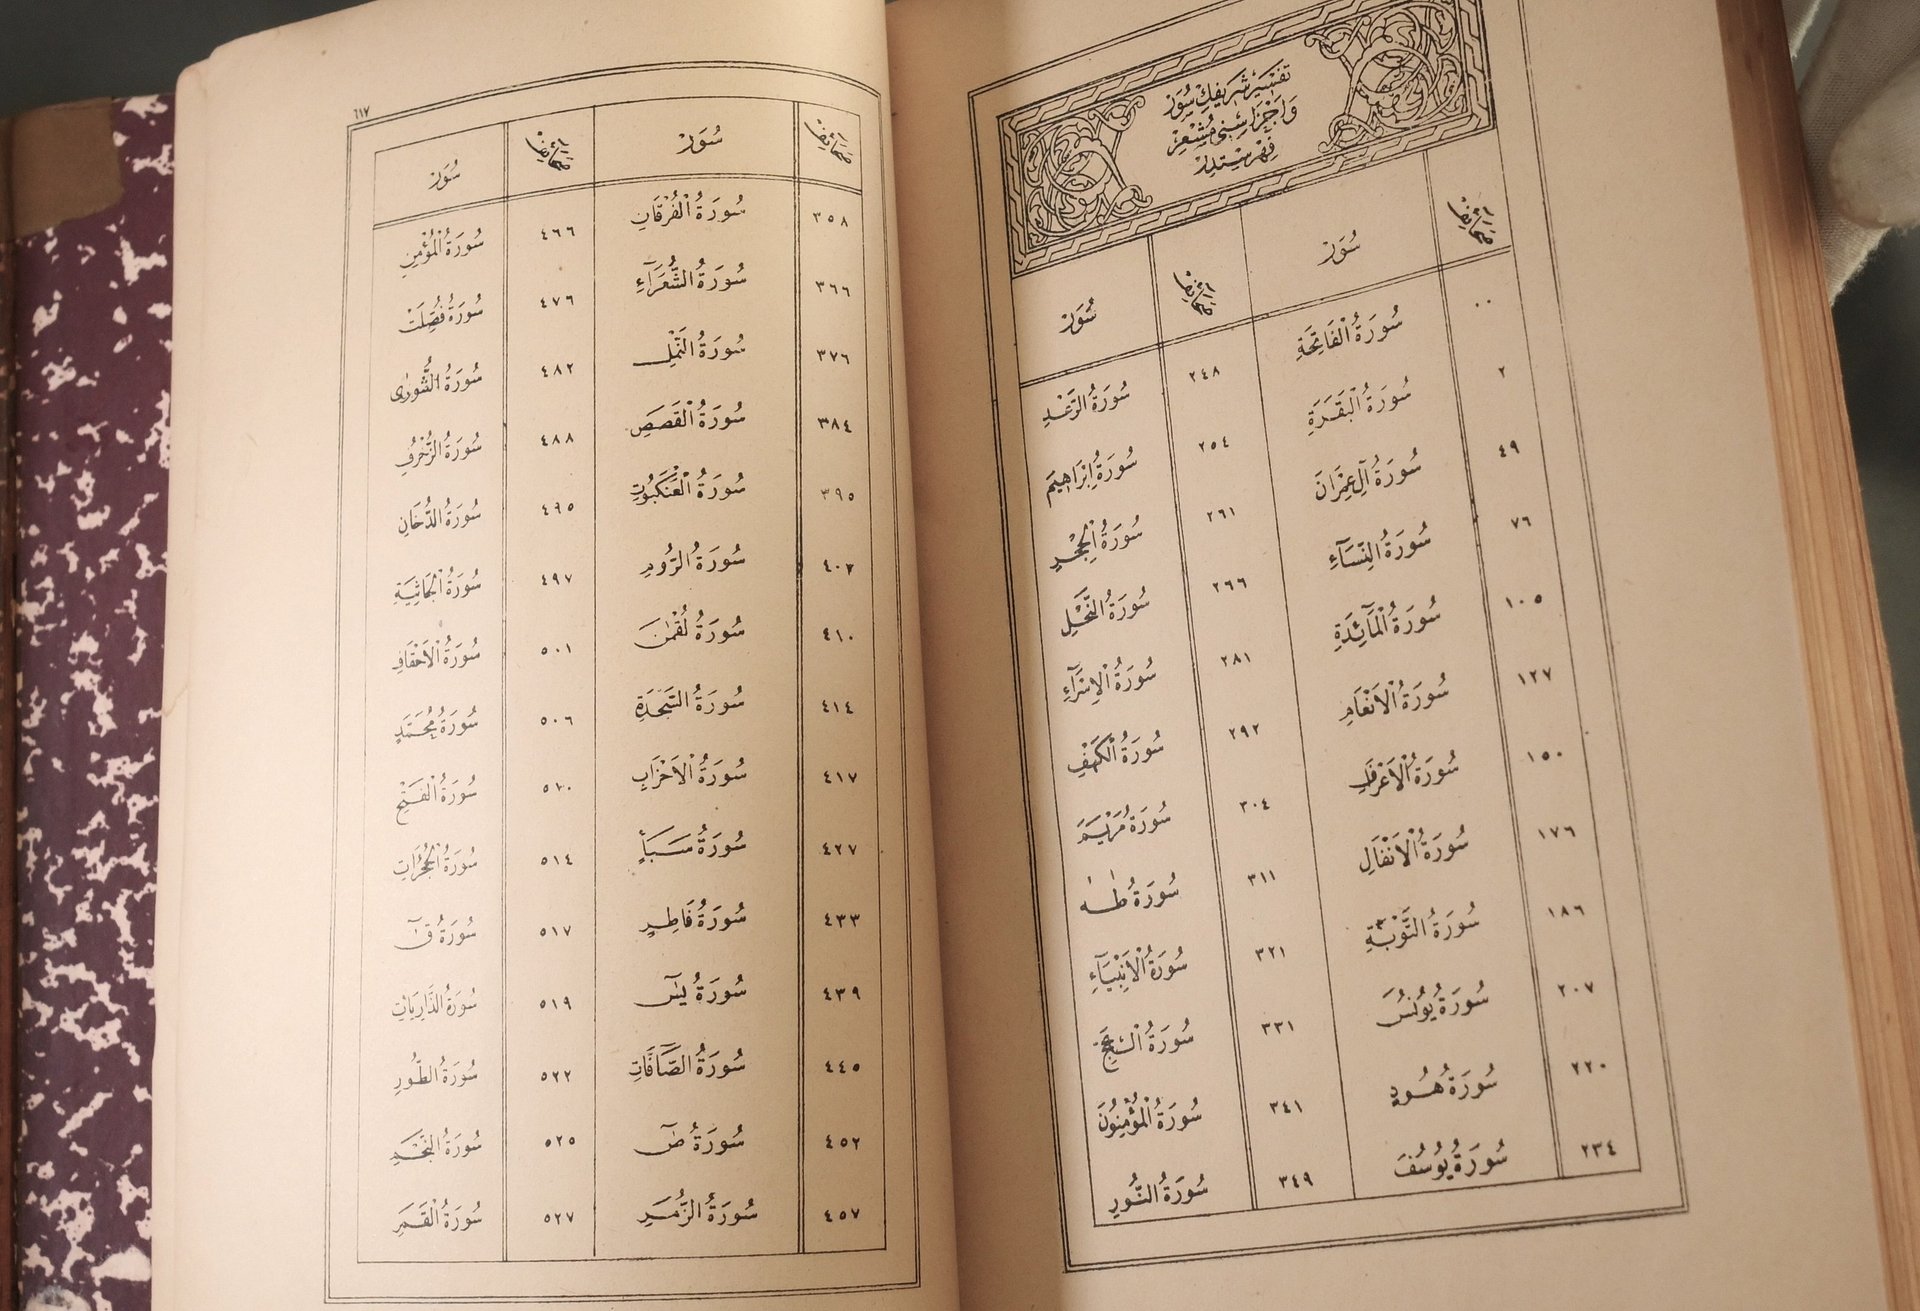 تَفْسِيرِ شَرِيفِكْ سُوَرْ
وَاَجْزَاسِنِى مُشْعِرْ
فِهْرِسْتِدِرْ
صَحَائِفْ سُوَرْ صَحَائِفْ سُوَرْ
٠٠ سُورَةُ الْفَاتِحَةِ ٢٤٨ سُورَةُ الرَّعْدِ
٢ سُورَةُ الْبَقَرَةِ ٢٥٤ سُورَةُ اِبْرَاهِيمَ
٤٩ سُورَةُ آلِ عِمْرَانَ ٢٦١ سُورَةُ الْحِجْرِ
٧٦ سُورَةُ النِّسَآءِ ٢٦٦ سُورَةُ النَّحْلِ
١٠٥ سُورَةُ الْمَآئِدَةِ ٢٨١ سُورَةُ الْاِسْرَآءِ
١٢٧ سُورَةُ الْاَنْعَامِ ٢٩٢ سُورَةُ الْكَهْفِ
١٥٠ سُورَةُ الْاَعْرَافِ ٣٠٤ سُورَةُ مَرْيَمَ
١٧٦ سُورَةُ الْاَنْفَالِ ٣١١ سُورَةُ طٰهٰ
١٨٦ سُورَةُ التَّوْبَةِ ٣٢١ سُورَةُ الْاَنْبِيَآءِ
٢٠٧ سُورَةُ يُونُسَ ٣٣١ سُورَةُ الْحَجِّ
٢٢٠ سُورَةُ هُودٍ ٣٤١ سُورَةُ الْمُؤْمِنُونَ
٢٣٤ سُورَةُ يُوسُفَ ٣٤٩ سُورَةُ النُّورِ
٦١٧
صَحَائِفْ سُوَرْ صَحَائِفْ سُوَرْ
٣٥٨ سُورَةُ الْفُرْقَانِ ٤٦٦ سُورَةُ الْمُؤْمِنِ
٣٦٦ سُورَةُ الشُّعَرَآءِ ٤٧٦ سُورَةُ فُصِّلَتْ
٣٧٦ سُورَةُ النَّمْلِ ٤٨٢ سُورَةُ الشُّورٰى
٣٨٤ سُورَةُ الْقَصَصِ ٤٨٨ سُورَةُ الزُّخْرُفِ
٣٩٥ سُورَةُ الْعَنْكَبُوتِ ٤٩٥ سُورَةُ الدُّخَانِ
٤٠٢ سُورَةُ الرُّومِ ٤٩٧ سُورَةُ الْجَاثِيَةِ
٤١٠ سُورَةُ لُقْمٰنَ ٥٠١ سُورَةُ الْاَحْقَافِ
٤١٤ سُورَةُ السَّجْدَةِ ٥٠٦ سُورَةُ مُحَمَّدٍ
٤١٧ سُورَةُ الْاَحْزَابِ ٥١٠ سُورَةُ الْفَتْحِ
٤٢٧ سُورَةُ سَبَأٍ ٥١٤ سُورَةُ الْحُجُرَاتِ
٤٣٣ سُورَةُ فَاطِرٍ ٥١٧ سُورَةُ قٓ
٤٣٩ سُورَةُ يٰسٓ ٥١٩ سُورَةُ الذَّارِيَاتِ
٤٤٥ سُورَةُ الصَّآفَّاتِ ٥٢٢ سُورَةُ الطُّورِ
٤٥٢ سُورَةُ صٓ ٥٢٥ سُورَةُ النَّجْمِ
٤٥٧ سُورَةُ الزُّمَرِ ٥٢٧ سُورَةُ الْقَمَرِ